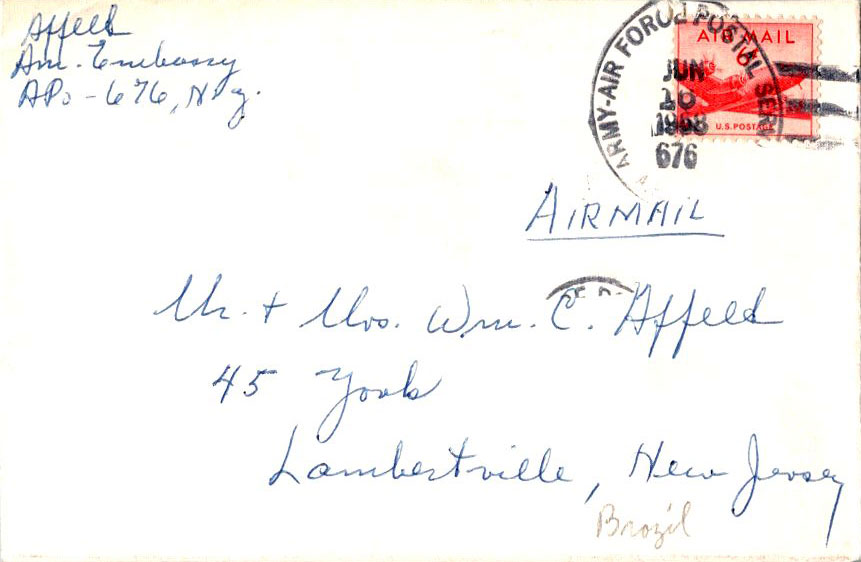 Affeld
Am. Embassy
APO - 676, N.Y.
ARMY-AIR FORCE POSTAL SERV
JUN
10
676
AIR MAIL
6¢
U.S. POSTAGE
AIRMAIL
Mr. + Mrs. Wm. C. Affeld
45 York
Lambertville, New Jersey
Brazil